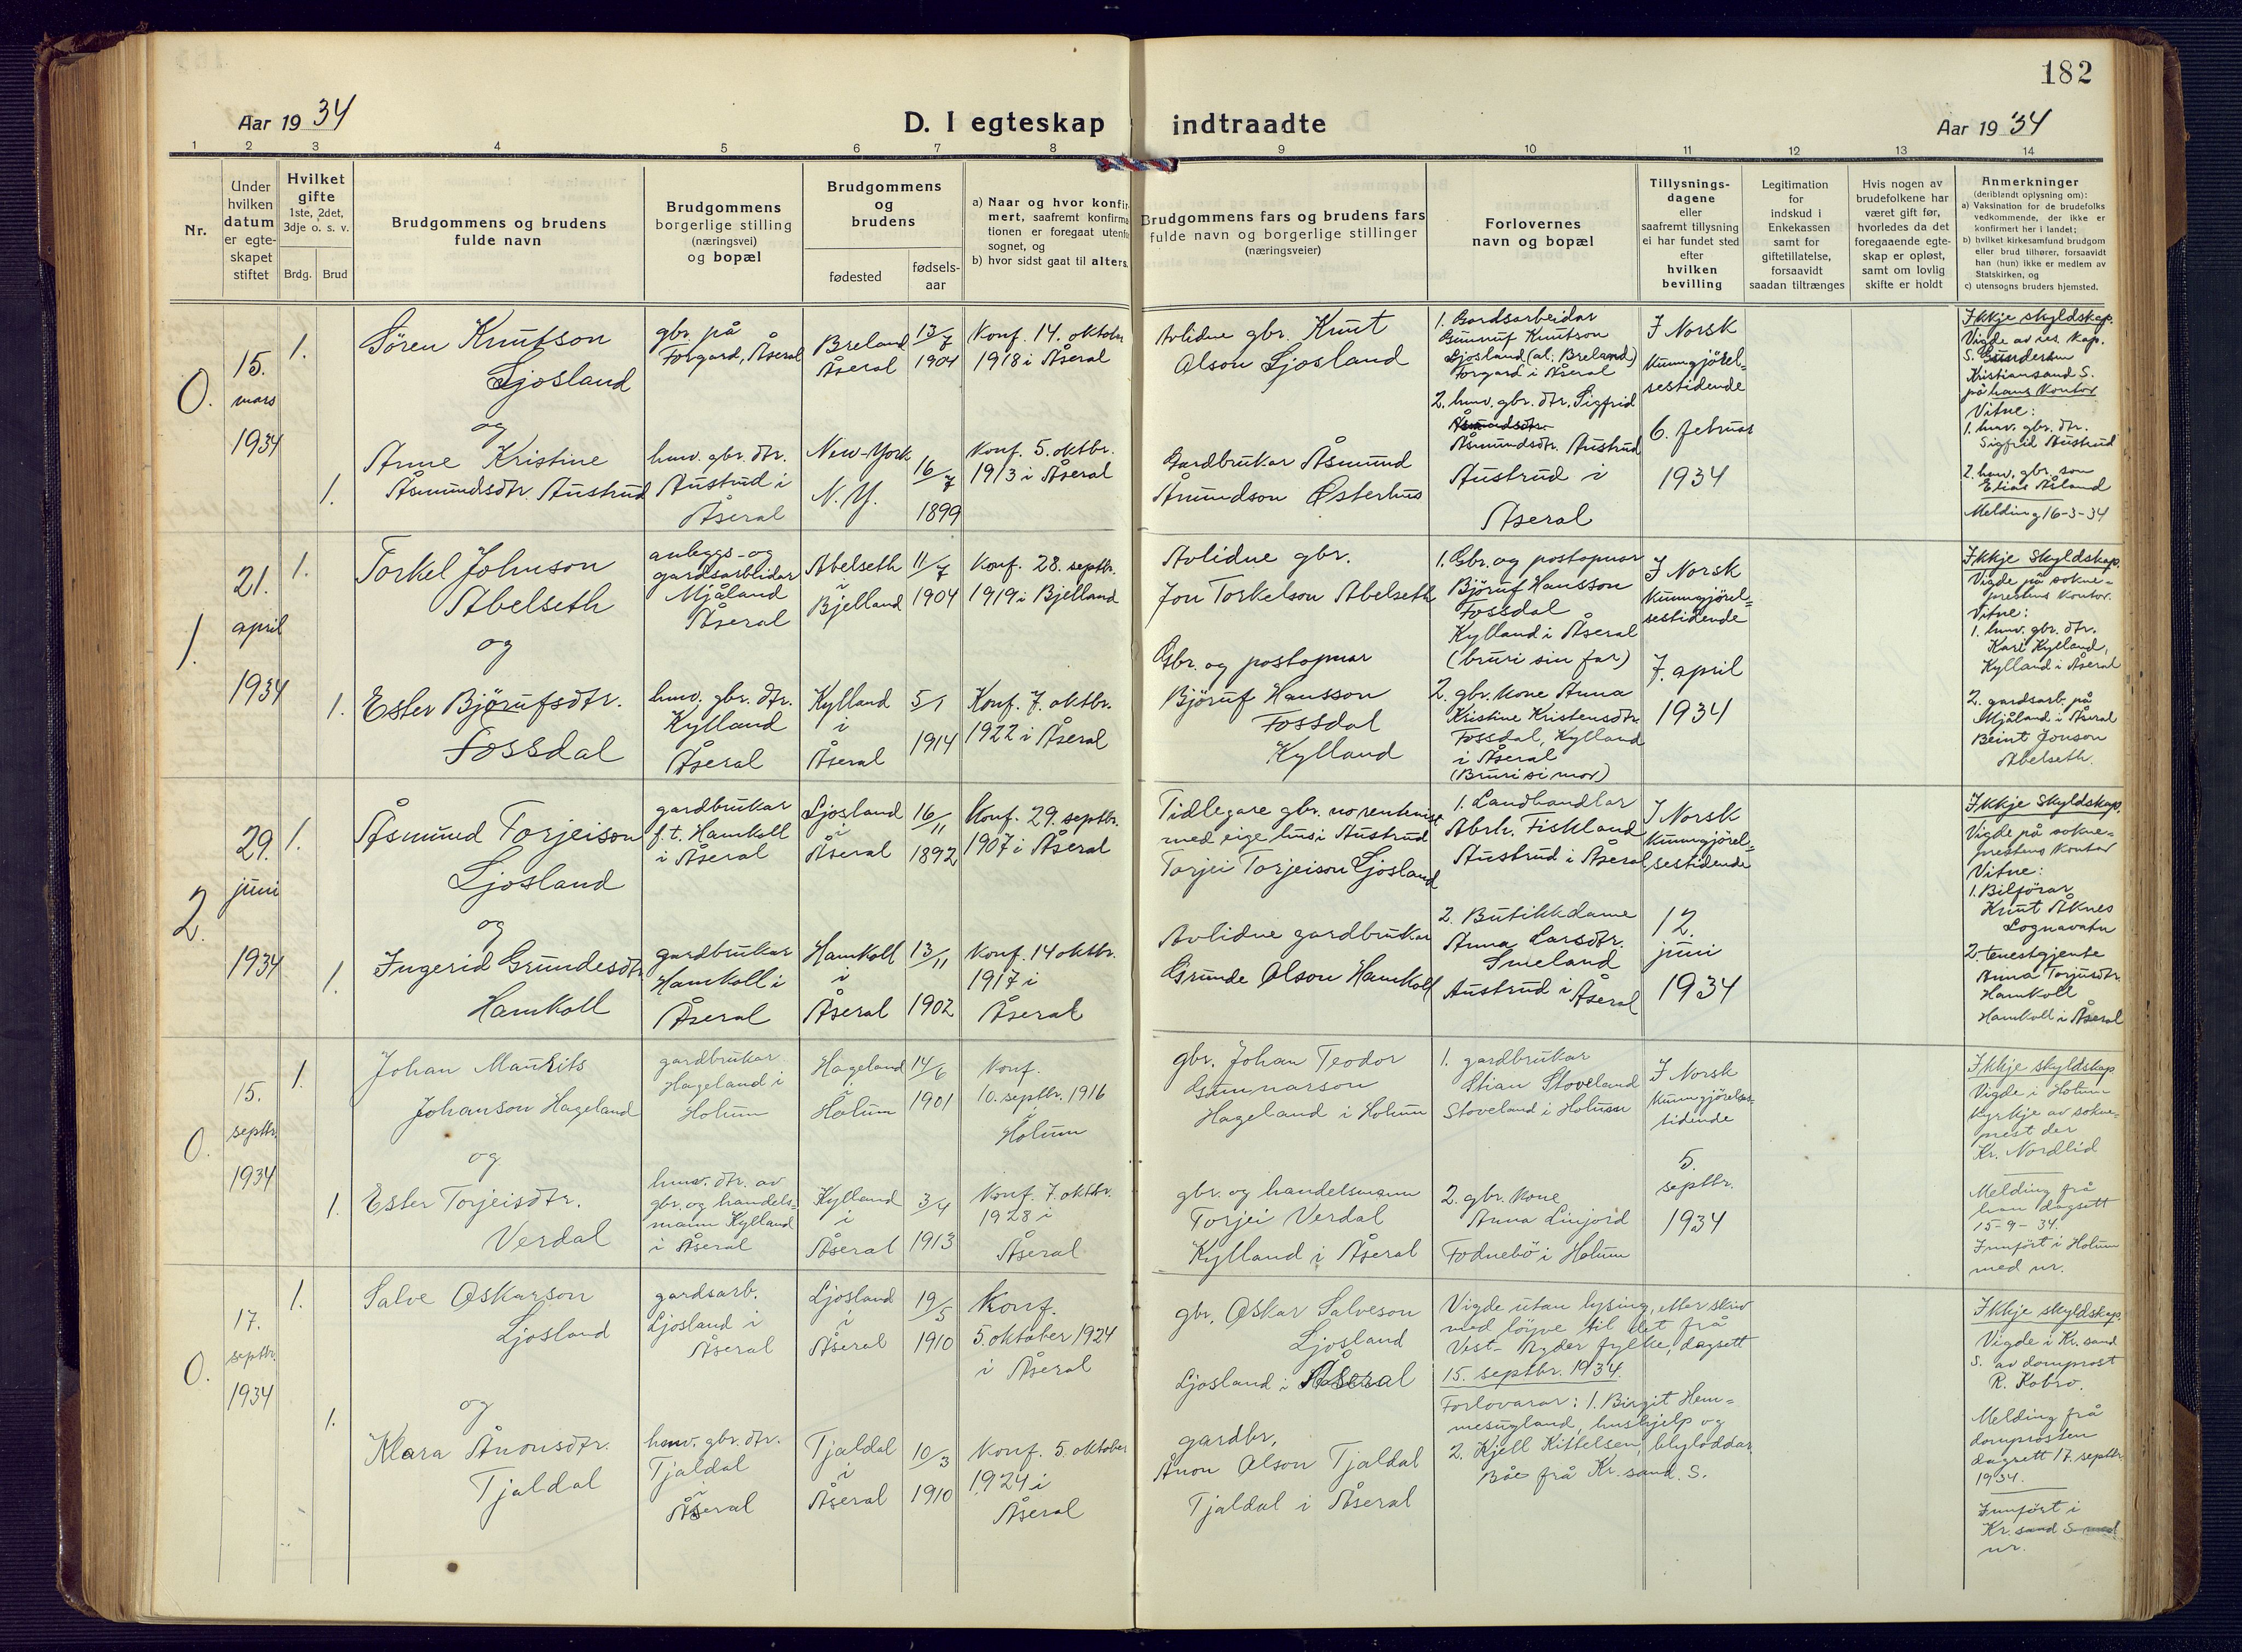 182
Aar 1934
D. I egteskap indtraadte
Aar 1934
1 2 3 4 5 6 7 8 9 10 11 12 13 14
Nr.
Under
hvilken
datum
er egte-
skapet
stiftet
Hvilket
gifte
1ste, 2det,
3dje o. s. v.
Brdg. Brud
Brudgommens og brudens
fulde navn
Brudgommens
borgerlige stilling
(næringsvei)
og bopæl
Brudgommens
og
brudens
fødested
fødsels-
aar
a) Naar og hvor konfir-
mert, saafremt konfirma
tionen er foregaat utenfo
sognet, og
b) hvor sidst gaat til alters.
Brudgommens fars og brudens fars
fulde navn og borgerlige stillinger
(næringsveier)
Forlovernes
navn og bopæl
Tillysnings-
dagene
eller
saafremt tillysning
ei har fundet sted
efter
hvilken
bevilling
Legitimation
for
indskud i
Enkekassen
samt for
giftetillatelse,
forsaavidt
saadan tiltrænges
Hvis nogen av
brudefolkene har
været gift før,
hvorledes da det
foregaaende egte-
skap er opløst,
samt om lovlig
skifte er holdt
Anmerkninger
(deriblandt oplysning om):
a) Vaksination for de brudefolks
vedkommende, der ikke er
konfirmert her i landet;
b) hvilket kirkesamfund brudgom
eller brud tilhører, forsaavidt
han (hun) ikke er medlem av
Statskirken, og
c) utensogns bruders hjemsted.
0.
15.
mars
1934
1.
Søren Knutson
Ljosland
og
1.
Anne Kristine
Åsmundsdtr. Austrud
gbr. på
Forgard, Åseral
hmv. gbr. dtr.
Austrud i
Åseral
Breland
Åseral
New-York
N. Y.
13/7
1904
16/7
1899
Konf. 14. oktober
1918 i Åseral
Konf. 5. oktbr.
1913 i Åseral
Avlidne gbr. Knut
Olson Ljosland
Gardbrukar Åsmund
Ånundson Østerhus
1. Gardsarbeidar
Gunnuf Knutson
Ljosland (al. Breland)
Forgard i Åseral
2. hmv. gbr. dtr. Sigfrid
Åsmundsdtr.
Åsmundsdtr. Austrud
Austrud i
Åseral
I Norsk
Kunngjörel=
sestidende
6. februar
1934
Ikkje skyldskap.
Vigde av res. kap.
S. Gundersen
Kristiansand S.
på hans kontor
Vitne:
1. hmv. gbr. dtr.
Sigfrid Austrud
2. hmv. gbr. son
Elias Åsland
Melding 16-3-34
1.
21.
april
1934
1.
Torkel Johnson
Abelseth
og
1.
Ester Bjørufsdtr.
Fossdal
anleggs- og
gardsarbeidar
Mjåland
Åseral
hmv. gbr. dtr.
Kylland
Åseral
Abelseth
i
Bjelland
Kylland
i
Åseral
11/7
1904
5/1
1914
Konf. 28. septbr.
1919 i Bjelland
Konf. 7. oktbr.
1922 i Åseral
Avlidne gbr.
Jon Torkelson Abelseth
Gbr. og postopnar
Bjøruf Hansson
Fossdal
Kylland
1. Gbr. og postopnar
Bjøruf Hansson
Fossdal
Kylland i Åseral
(bruri sin far)
2. gbr. kone Anna
Kristine Kristensdtr.
Fossdal, Kylland
i Åseral
(Bruri si mor)
I Norsk
Kunngjörel=
sestidende
7. april
1934
Ikkje skyldskap.
Vigde på sokne=
prestens kontor.
Vitne:
1. hmv. gbr. dtr.
Kari Kylland,
Kylland i Åseral
2. gardsarb. på
Mjåland i Åseral
Beint Jonson
Abelseth.
2.
29.
juni
1934
1.
Åsmund Torjeison
Ljosland
og
1.
Ingerid Grundesdtr
Hamkoll
gardbrukar
f. t. Hamkoll
i Åseral
gardbrukar
Hamkoll i
Åseral
Ljosland
i
Åseral
Hamkoll
i
Åseral
16/11
1892
13/11
1902
Konf. 29. septbr.
1907 i Åseral
Konf. 14 oktbr.
1917 i
Åseral
Tidlegare gbr. no rentenist
med eige hus i Austrud
Torjei Torjeison Ljosland
Avlidne gardbrukar
Grunde Olson Hamkoll
1. Landhandlar
Abrh. Fiskland
Austrud i Åseral
2. Butikkdame
Anna Larsdtr.
Smeland
Austrud i Åseral
I Norsk
Kunngjörel=
sestidende
12.
juni
1934
Ikkje skyldskap.
Vigde på sokne=
prestens kontor
Vitne:
1. Bilförar
Knut Åknes
Lognavatn
2. tenestgjente
Anna Torjusdtr.
Hamkoll
Hamkoll i Åseral
0.
15.
septbr.
1934
1.
Johan Maurits
Johanson Hageland
og
1.
Ester Torjeisdtr.
Verdal
gardbrukar
Hageland i
Holum
hmv. dtr. av
gbr. og handels=
mann Kylland
i Åseral
Hageland
i
Holum
Kylland
i
Åseral
14/6
1901
3/4
1913
Konf.
10. septbr. 1916
i
Holum
Konf. 7. oktbr.
1928 i
Åseral
gbr. Johan Teodor
Gunnarson
Hageland i Holum
gbr. og handelsmann
Torjei Verdal
Kylland i Åseral
1. gardbrukar
Stian Stoveland
Stoveland i Holum
2. gbr. kone
Anna Linjord
Fodnebö i Holum
I Norsk
Kunngjörelses=
tidende
5.
septbr.
1934
Ikkje skyldskap
Vigde i Holum
kyrkje av sokne=
prest der
Kr. Nordlid
Melding frå
han dagsett
15-9-34.
Innfört i Holum
med nr.
0.
17.
septbr.
1934
1.
Salve Oskarson
Ljosland
og
1.
Klara Ånonsdtr.
Tjaldal
gardsarb.
Ljosland i
Åseral
hmv. gbr. dtr.
Tjaldal
i
Åseral
Ljosland
i
Åseral
Tjaldal
i
Åseral
19/5
1910
10/3
1910
Konf.
5. oktober 1924
i Åseral
Konf. 5. oktober
1924 i
Åseral
gbr. Oskar Salveson
Ljosland
Ljosland i Åseral
gardbr.
Ånon Olson Tjaldal
Tjaldal i Åseral
Vigde utan lysing, etter skriv
med löyve til det frå
Vest-Agder fylke, dagsett
15. septbr. 1934.
Forlovarar: 1. Birgit Hom=
mesugland, hushjelp og
2. Kjell Kittelsen, blyloddar,
Båe frå Kr.sand. S.
Ikkje skyldskap.
Vigde i Kr. sand
S. av domprost
R. Kobro.
Melding frå
domprosten
dagsett 17. septbr
1934.
Innfört i
Kr. sand S med
nr.